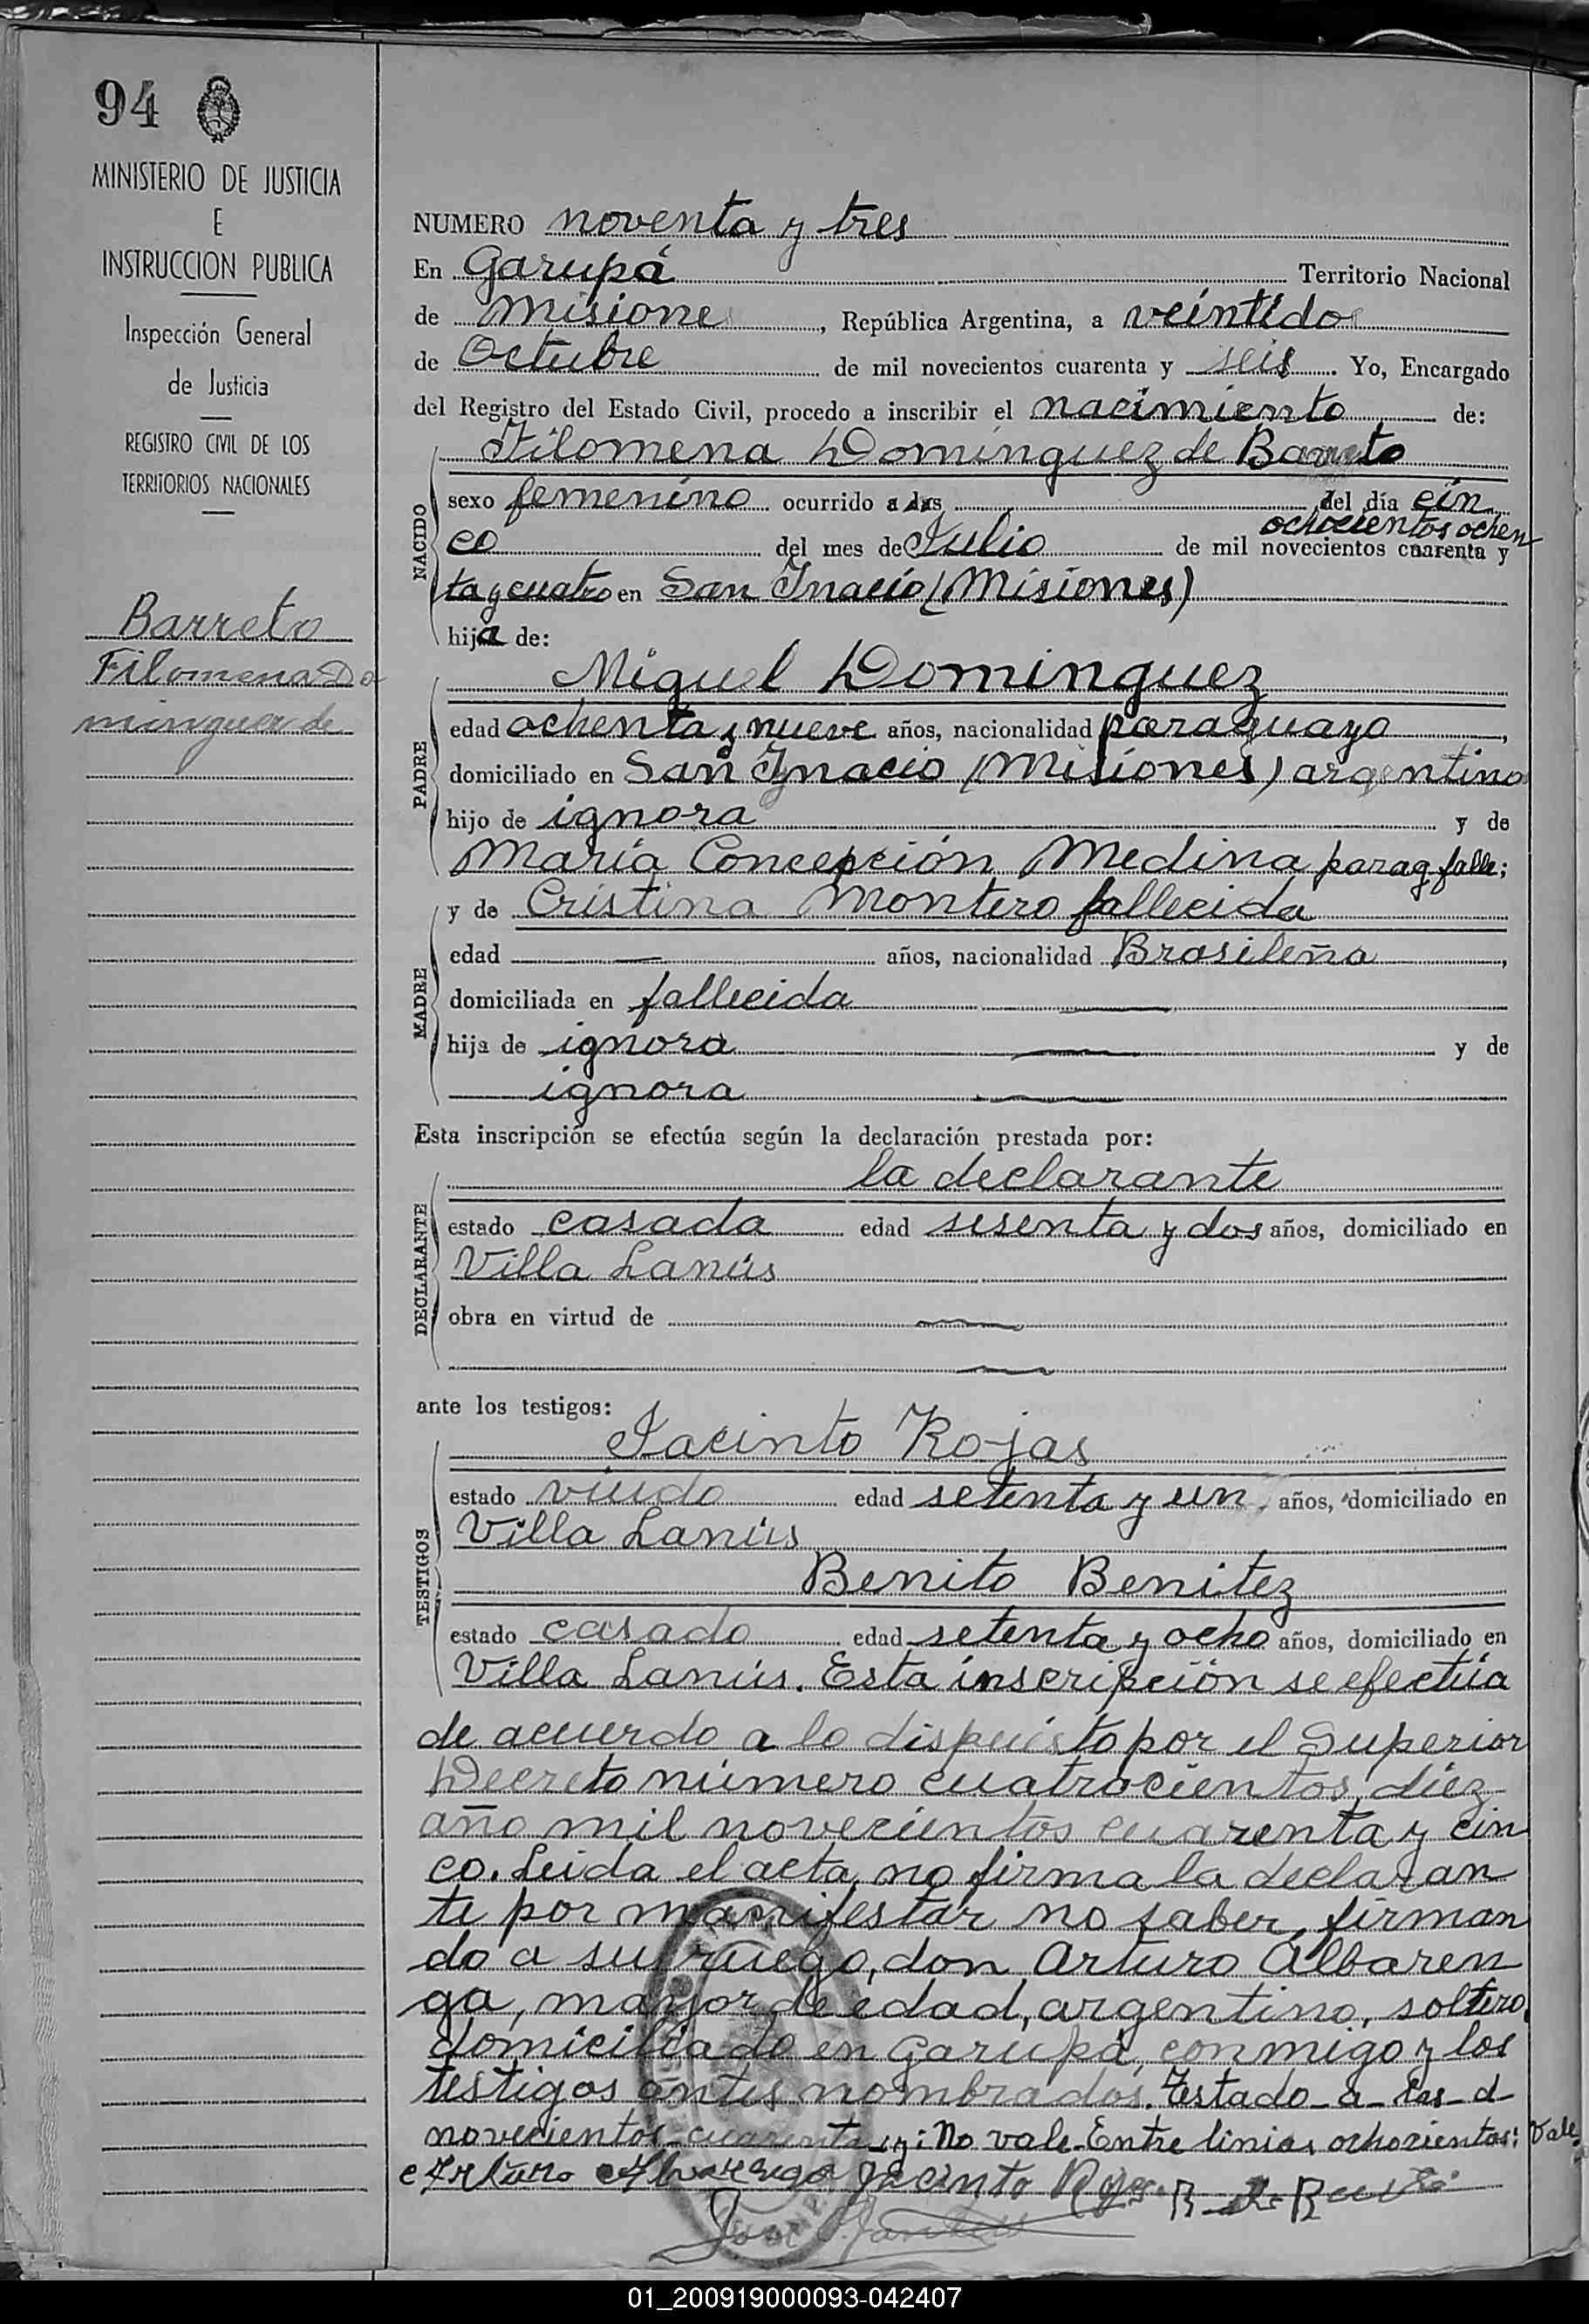 94
MINISTERIO DE JUSTICIA
E
INSTRUCCION PUBLICA
Inspección General
de Justicia
REGISTRO CIVIL DE LOS
TERRITORIOS NACIONALES
Barreto
Filomena Do
minguez de
NUMERO noventa y tres
En Garupá Territorio Nacional
de Misiones, República Argentina, a veintidos
de Octubre de mil novecientos cuarenta y seis. Yo, Encargado
del Registro del Estado Civil, procedo a inscribir el nacimiento de:
NACIDO
Filomena Dominguez de Barreto
sexo femenino ocurrido a las del día cin
ochocientos ochen
co del mes de Julio de mil novecientos cuarenta y
ta y cuatro en San Ignacio (Misiones)
hija de:
PADRE
Miguel Dominguez
edad ochenta y nueve años, nacionalidad paraguayo,
domiciliado en San Ignacio (Misiones) argentino
hijo de ignora y de
María Concepción Medina parag. falle;
MADRE
y de Cristina Montero fallecida
edad — años, nacionalidad Brasileña,
domiciliada en fallecida
hija de ignora y de
ignora
Esta inscripción se efectúa según la declaración prestada por:
DECLARANTE
la declarante
estado casada edad sesenta y dos años, domiciliado en
Villa Lanús
obra en virtud de
ante los testigos:
TESTIGOS
Jacinto Rojas
estado viudo edad setenta y un años, domiciliado en
Villa Lanús
Benito Benitez
estado casado edad setenta y ocho años, domiciliado en
Villa Lanús. Esta inscripción se efectúa
de acuerdo a lo dispuesto por el Superior
Decreto número cuatrocientos diez
año mil novecientos cuarenta y cin
co. Leida el acta, no firma la declaran
te por manifestar no saber, firman
do a su ruego, don Arturo Albaren
ga, mayor de edad, argentino, soltero,
domiciliado en Garupá, conmigo y los
testigos antes nombrados. Testado-a-las-d-
novecientos-cuarenta-y: No vale-Entre linias ochocientos: Vale.
Arturo Albarenga Jacinto Rojas
01_200919000093-042407